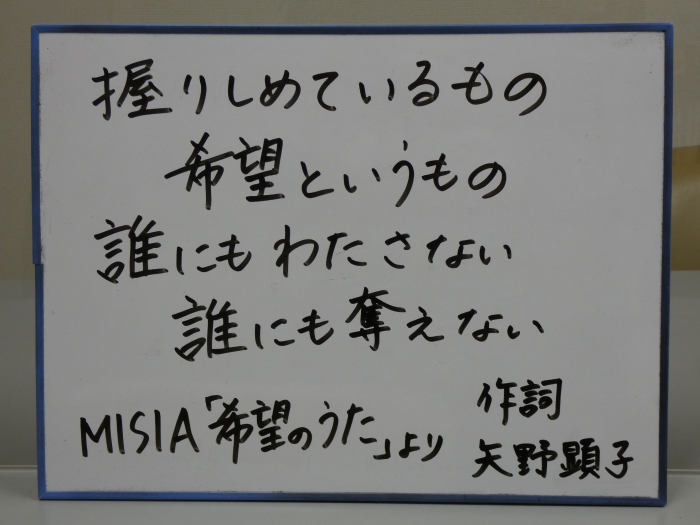 握りしめているもの
希望というもの
誰にもわたさない
誰にも奪えない
MISIA「希望のうた」より
作詞
矢野顕子